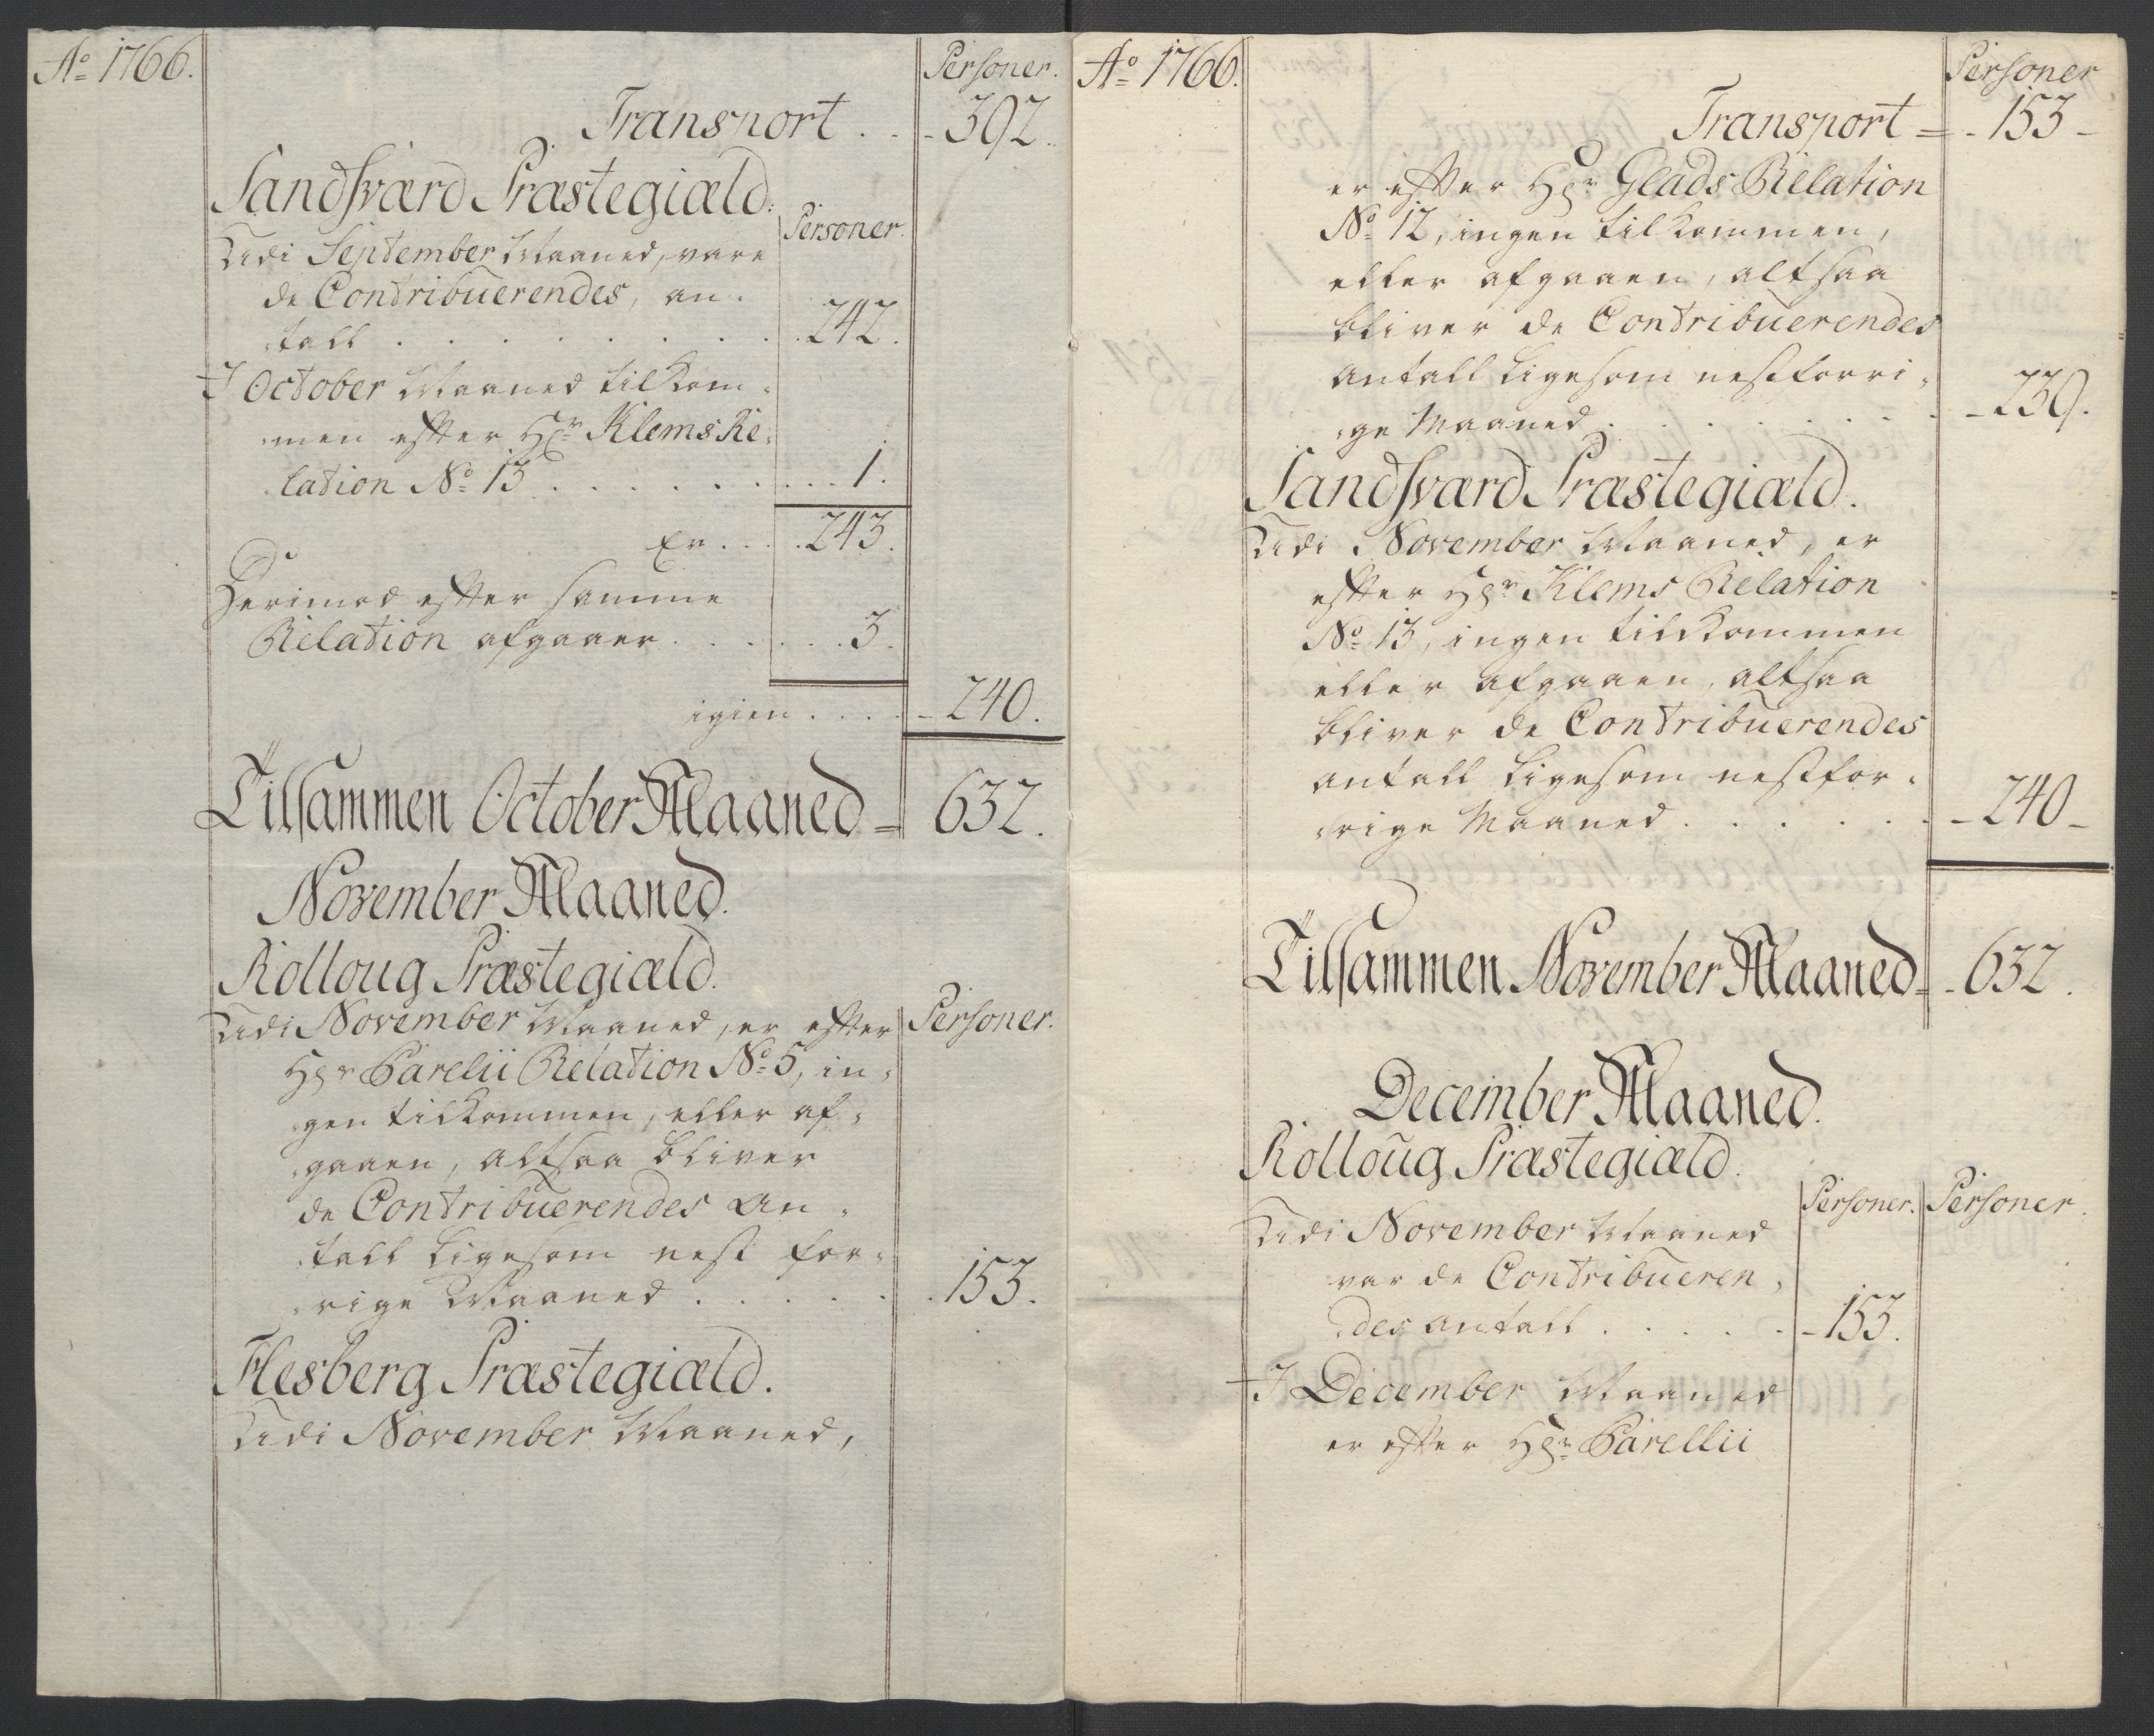 Ao 1766.
Personer.
Transport . . - 392.
Sandsværd Præstegiæld.
Personer.
Udi September Maaned, vare
de Contribuerendes, an-
tall . . . . . . . . 242.
I October Maaned tilkom-
men efter Hr. Klems Re-
lation No 13 . . . . . . . . 1.
Er . . . . 243.
Derimod efter samme
Relation afgaaer . . . . . . 3.
igien . . . . - 240.
Tilsammen October Maaned = 632.
November Maaned.
Rolloug Præstegiæld.
Udi November Maaned, er efter
Personer.
Hr Barelii Relation No 5, in-
gen tilkommen, eller af-
gaaen, altsaa bliver
de Contribuerendes an-
tall ligesom nest for-
rige Maaned . . . . . . 153.
Flesberg Præstegiæld.
Udi November Maaned,
Ao 1766.
Personer
Transport = - 153 -
er efter Hr Glads Relation
No 12, ingen tilkommen,
eller afgaaen, altsaa
bliver de Contribuerendes
antall ligesom nestforri-
ge Maaned . . . . . . - 239.
Sandsværd Præstegiæld.
Udi November Maaned, er
efter Hr Klems Relation
No 13, ingen tilkommen
eller afgaaen, altsaa
bliver de Contribuerendes
antall ligesom nestfor-
rige Maaned . . . . . . - 240 -
Tilsammen November Maaned = - 632.
December Maaned.
Rolloug Præstegiæld.
Personer. Personer.
Udi November Maaned
var de Contribueren-
des antall . . . . . - 153.
I December Maaned
er efter Hr Barellii